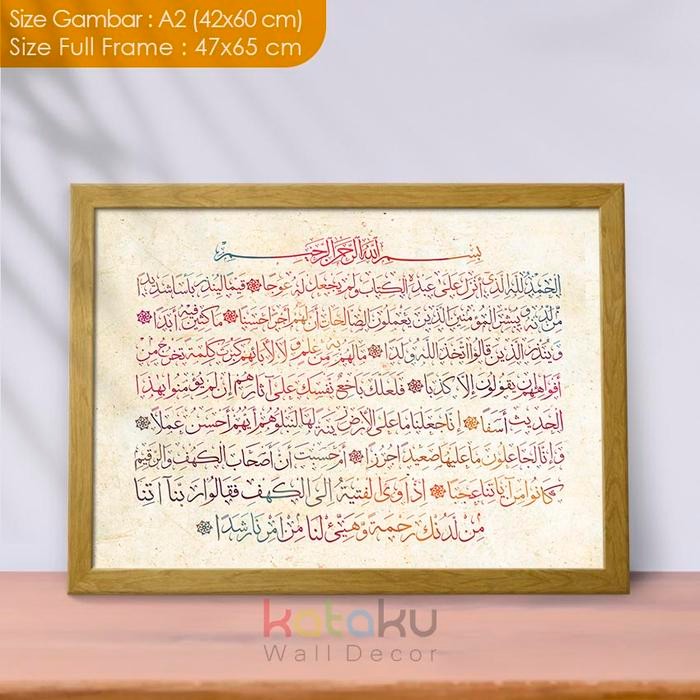 Size Gambar : A2 (42x60 cm)
Size Full Frame : 47x65 cm
بسم الله الرحمن الرحيم
الحمد لله الذي أنزل على عبده الكتاب ولم يجعل له عوجا قيما لينذر بأسا شديدا
من لدنه ويبشر المؤمنين الذين يعملون الصالحات أن لهم أجرا حسنا ماكثين فيه أبدا
وينذر الذين قالوا اتخذ الله ولدا مالهم به من علم ولا لآبائهم كبرت كلمة تخرج من
أفواههم إن يقولون إلا كذبا فلعلك باخع نفسك على آثارهم إن لم يؤمنوا بهذا
الحديث أسفا إنا جعلنا ما على الأرض زينة لها لنبلوهم أيهم أحسن عملا
وإنا لجاعلون ما عليها صعيدا جرزا أم حسبت أن أصحاب الكهف والرقيم
كانوا من آياتنا عجبا إذ أوى الفتية إلى الكهف فقالوا ربنا آتنا
من لدنك رحمة وهيئ لنا من أمرنا رشدا
kataku
Wall Decor